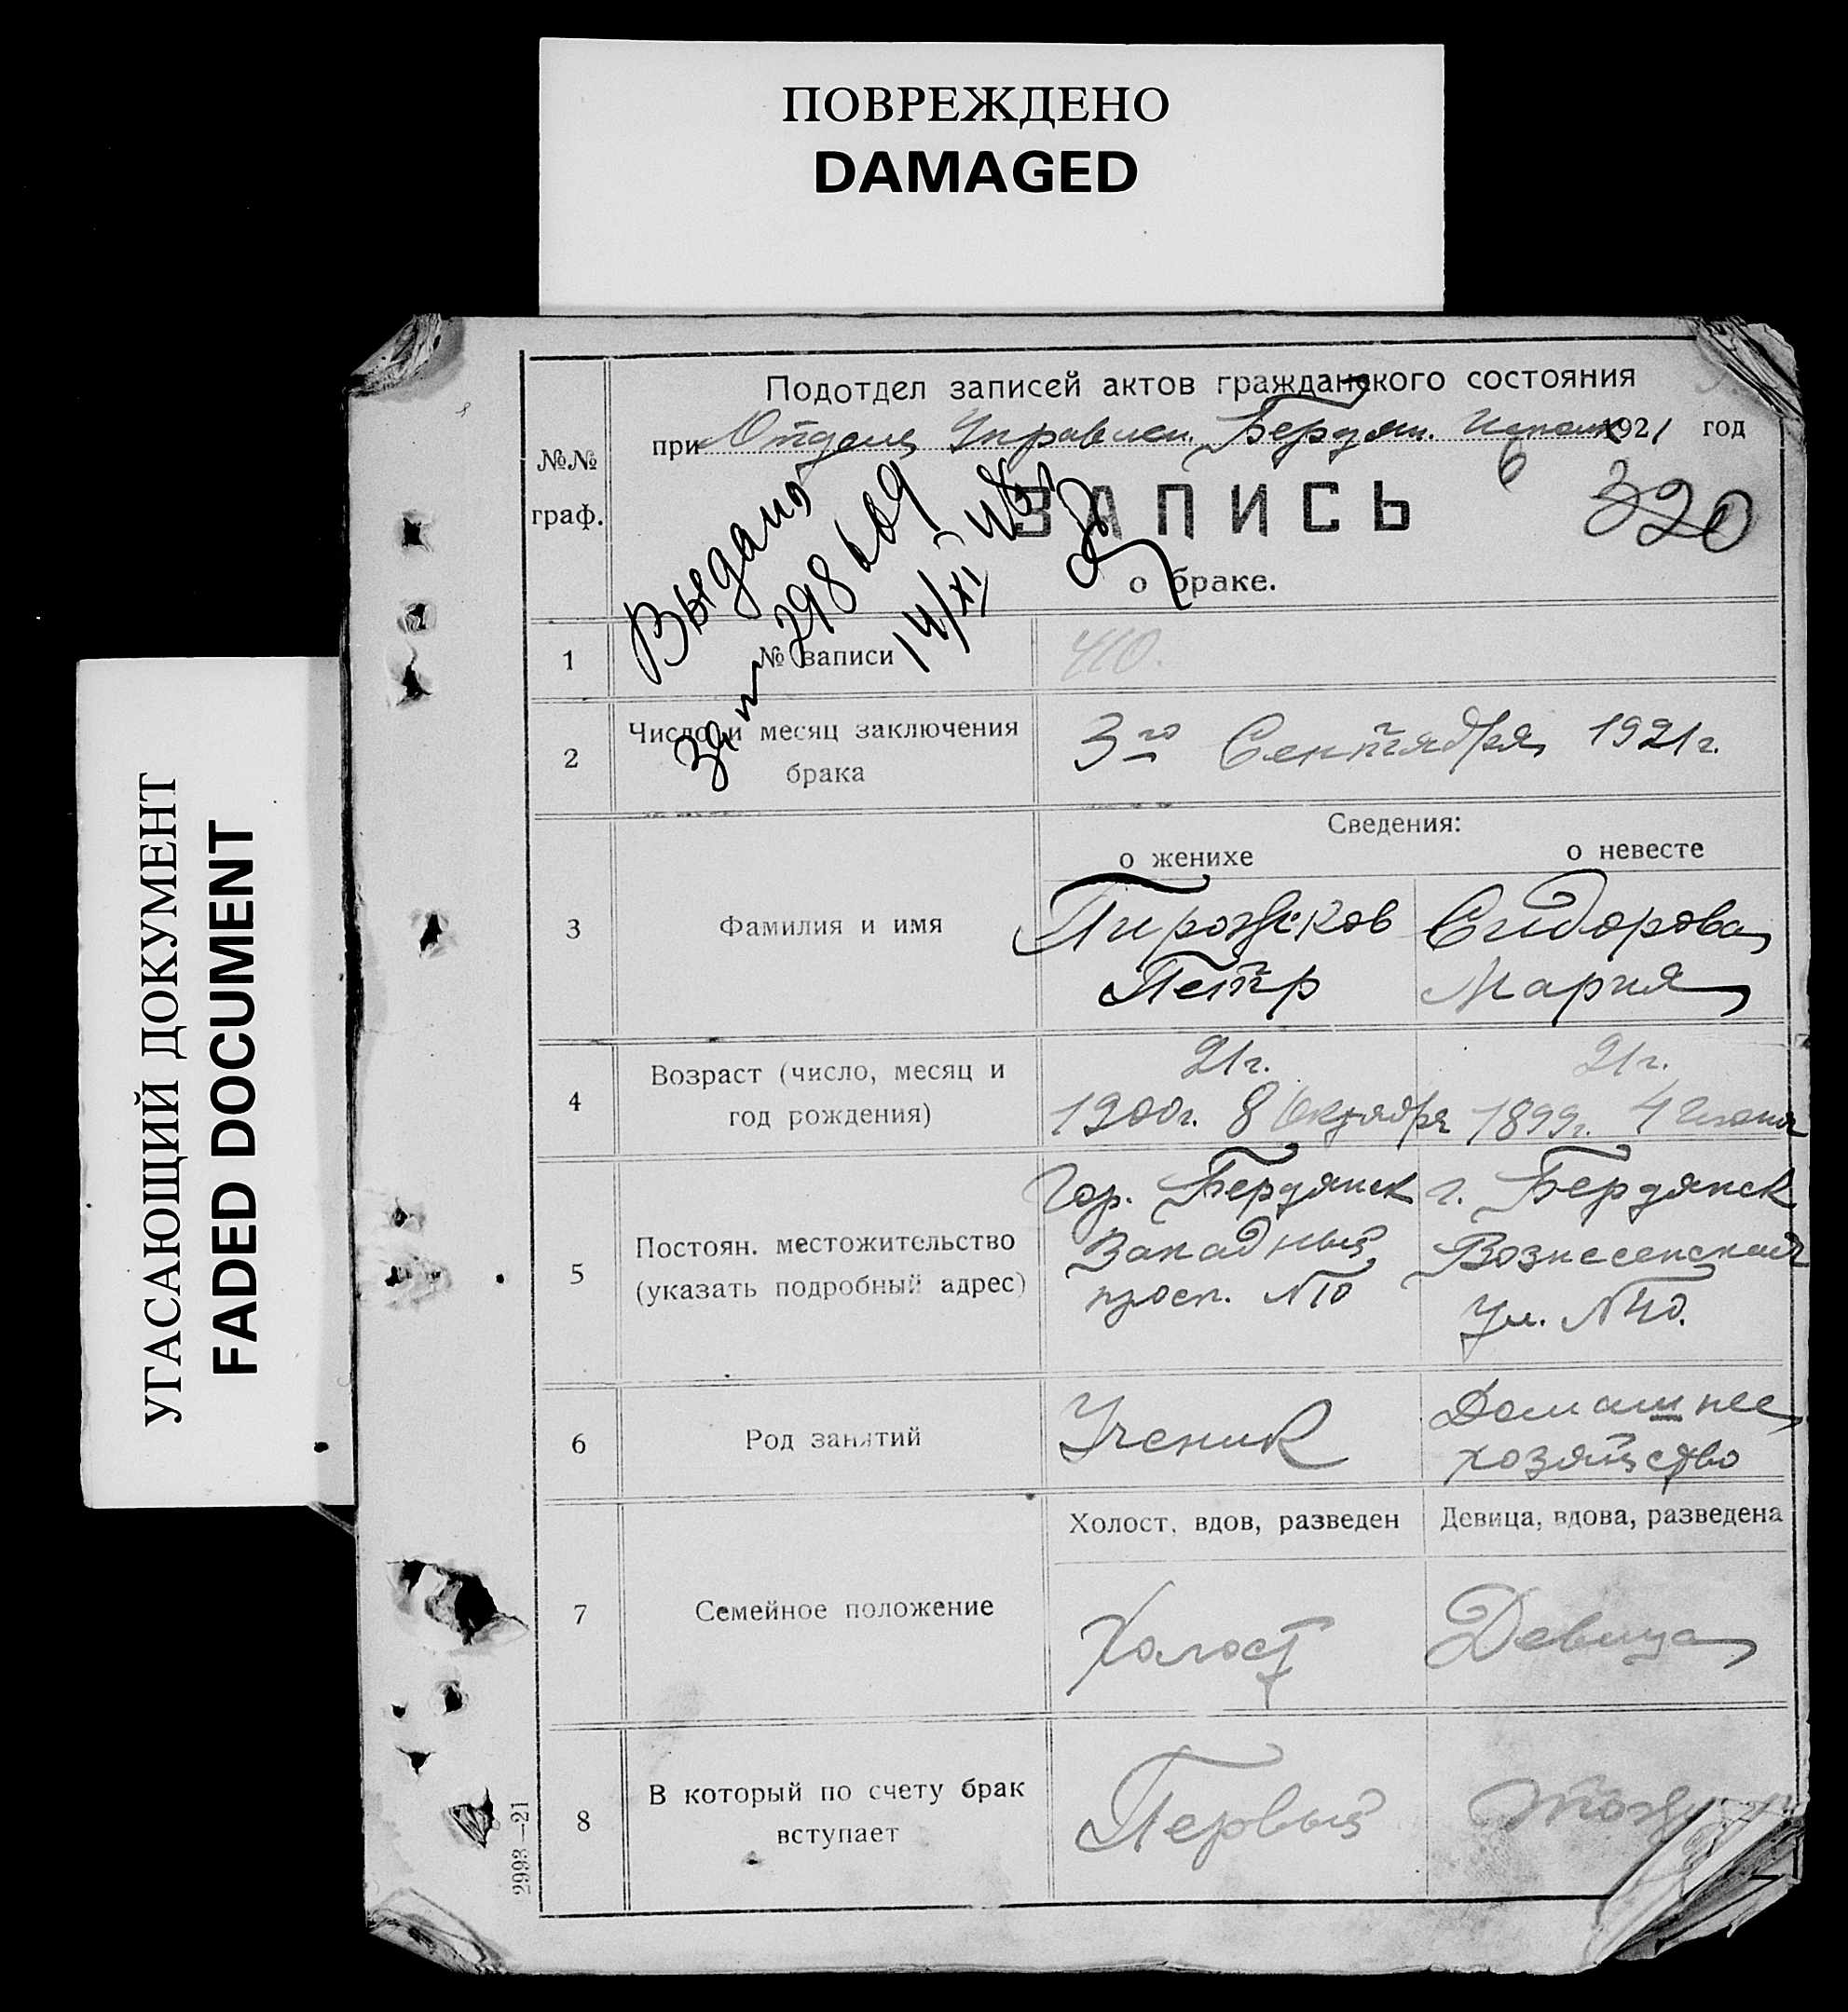 ПОВРЕЖДЕНО
DAMAGED
УГАСАЮЩИЙ ДОКУМЕНТ
FADED DOCUMENT
Подотдел записей актов гражданского состояния
при Отделе Управлен. Бердян. 1921 год
№№
граф.
ЗАПИСЬ
320
о браке.
Выдано
298609
14/XI
1
№ записи
410.
2
Число и месяц заключения
брака
3го Сентября 1921г.
Сведения:
о женихе
о невесте
3
Фамилия и имя
Пирожков
Петр
Сидорова
Мария
4
Возраст (число, месяц и
год рождения)
21г.
1900г. 8 Октября
21г.
1899г. 4
5
Постоян. местожительство
(указать подробный адрес)
Гор. Бердянск
Западный
просп. N10
г. Бердянск
Вознесенская
Ул. N40.
6
Род занятий
Ученик
Домашнее
хозяйство
7
Семейное положение
Холост, вдов, разведен
Девица, вдова, разведена
Холост
Девица
8
В который по счету брак
вступает
Первый
2993—21